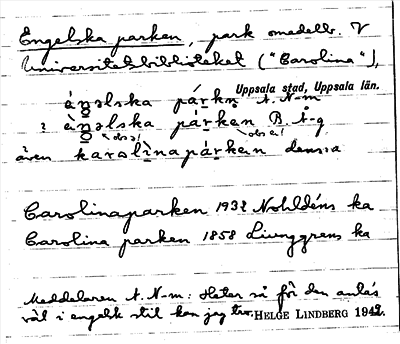 Engelska parken, park omedelb. V
Universitetsbiblioteket ("Carolina"),
Uppsala stad, Uppsala län.
éŋəlska párkn A. N-m
: èŋəlska párkən B. Å-g
obs ə! obs ə!
även karolìnapárkən densa
Carolinaparken 1932 Nohldéns ka
Carolina parken 1858 Ljunggrens ka
Meddelaren A. N-m: Heter så för den anlás
väl i engelsk stil kan jag tro. HELGE LINDBERG 1942.